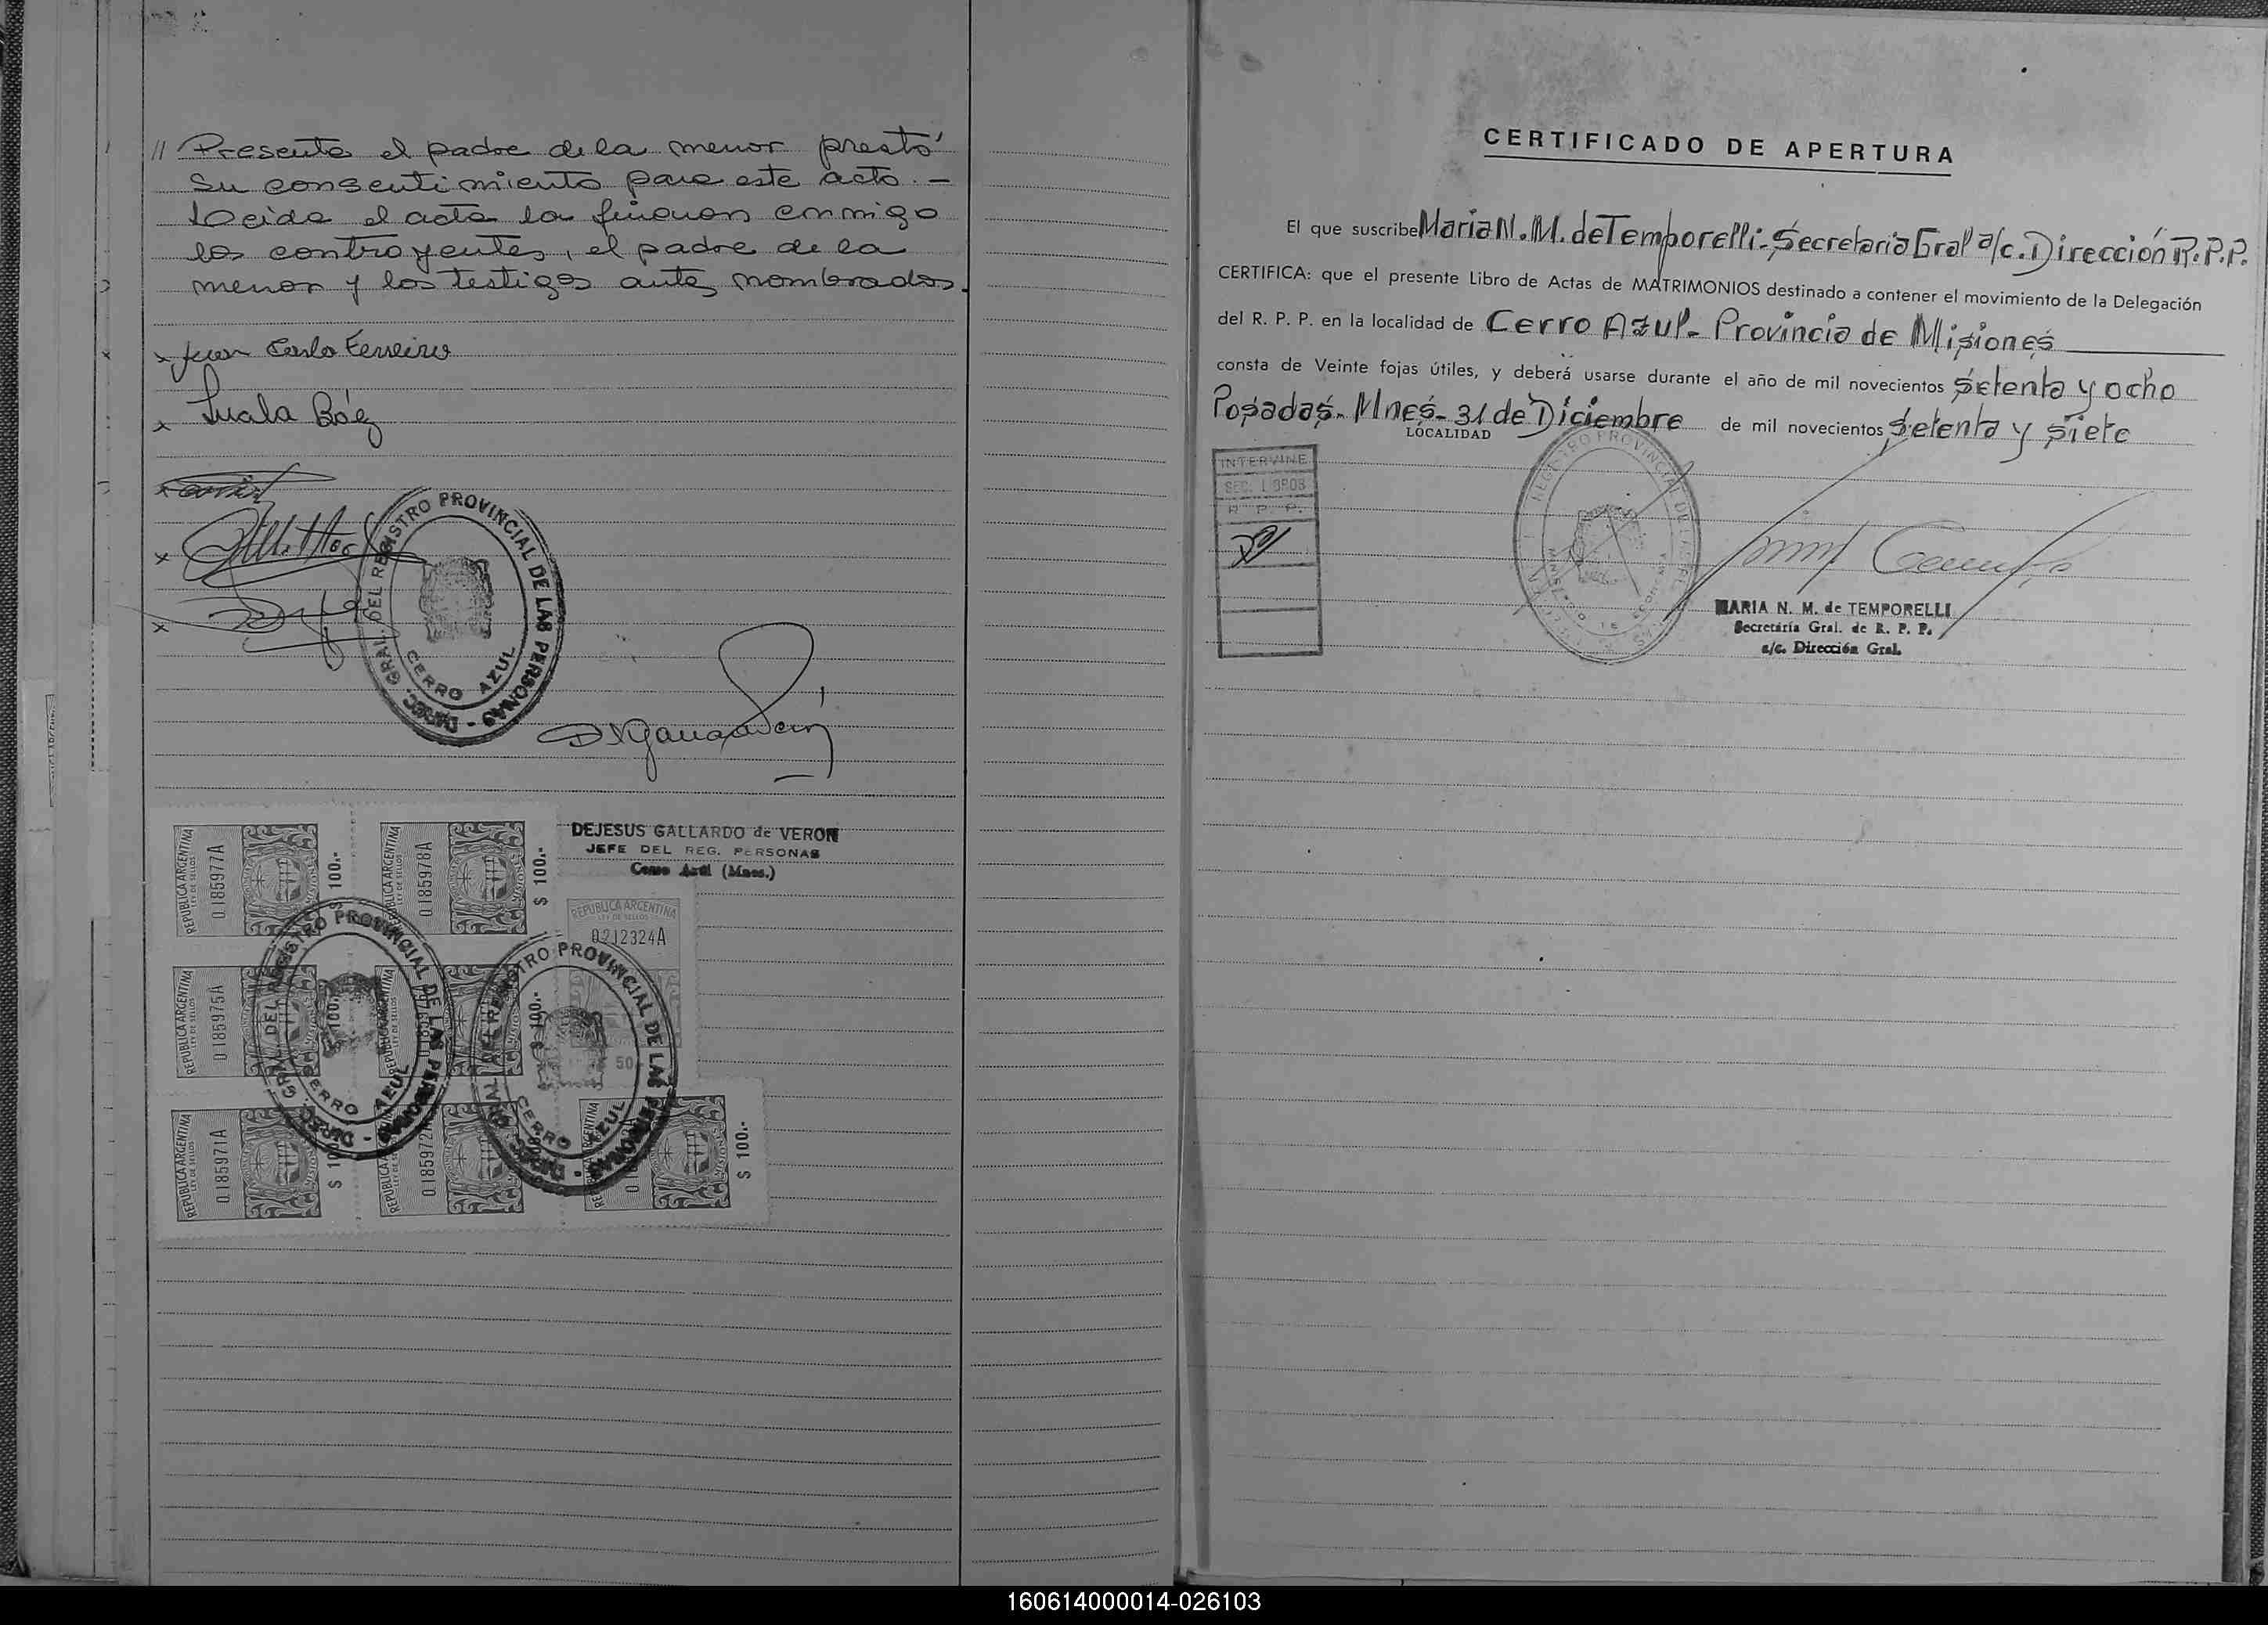 // Presente el padre de la menor prestó
su consentimiento para este acto. -
Leida el acta la firman conmigo
los contrayentes, el padre de la
menor y los testigos antes nombrados.
x Juan Carlo Ferreira
x Báez
x
x
x
DIREC. GRAL. DEL REGISTRO PROVINCIAL DE LAS PERSONAS -
CERRO AZUL
DEJESUS GALLARDO de VERON
JEFE DEL REG. PERSONAS
Cerro Azul (Mnes.)
REPUBLICA ARGENTINA
LEY DE SELLOS
0185977A
$ 100.-
REPUBLICA ARGENTINA
LEY DE SELLOS
0185978A
$ 100.-
REPUBLICA ARGENTINA
LEY DE SELLOS
0212324A
50
REPUBLICA ARGENTINA
LEY DE SELLOS
0185975A
$ 100.-
REPUBLICA ARGENTINA
LEY DE SELLOS
$ 100.-
REPUBLICA ARGENTINA
LEY DE SELLOS
0185971A
REPUBLICA ARGENTINA
0185972A
$ 100.-
DIREC. GRAL. DEL REGISTRO PROVINCIAL DE LAS PERSONAS -
CERRO AZUL
DIREC. GRAL. DEL REGISTRO PROVINCIAL DE LAS PERSONAS -
CERRO AZUL
CERTIFICADO DE APERTURA
El que suscribe Maria N. M. de Temporelli - Secretaria Gral a/c. Dirección R. P. P.
CERTIFICA: que el presente Libro de Actas de MATRIMONIOS destinado a contener el movimiento de la Delegación
del R. P. P. en la localidad de Cerro Azul - Provincia de Misiones
consta de Veinte fojas útiles, y deberá usarse durante el año de mil novecientos Setenta y ocho
Posadas - Mnes - 31 de Diciembre de mil novecientos Setenta y siete
LOCALIDAD
INTERVINE
SEC. LIBROS
R. P. P.
REGISTRO PROVINCIAL DE LAS
MARIA N. M. de TEMPORELLI
Secretaria Gral. de R. P. P.
a/c. Dirección Gral.
160614000014-026103